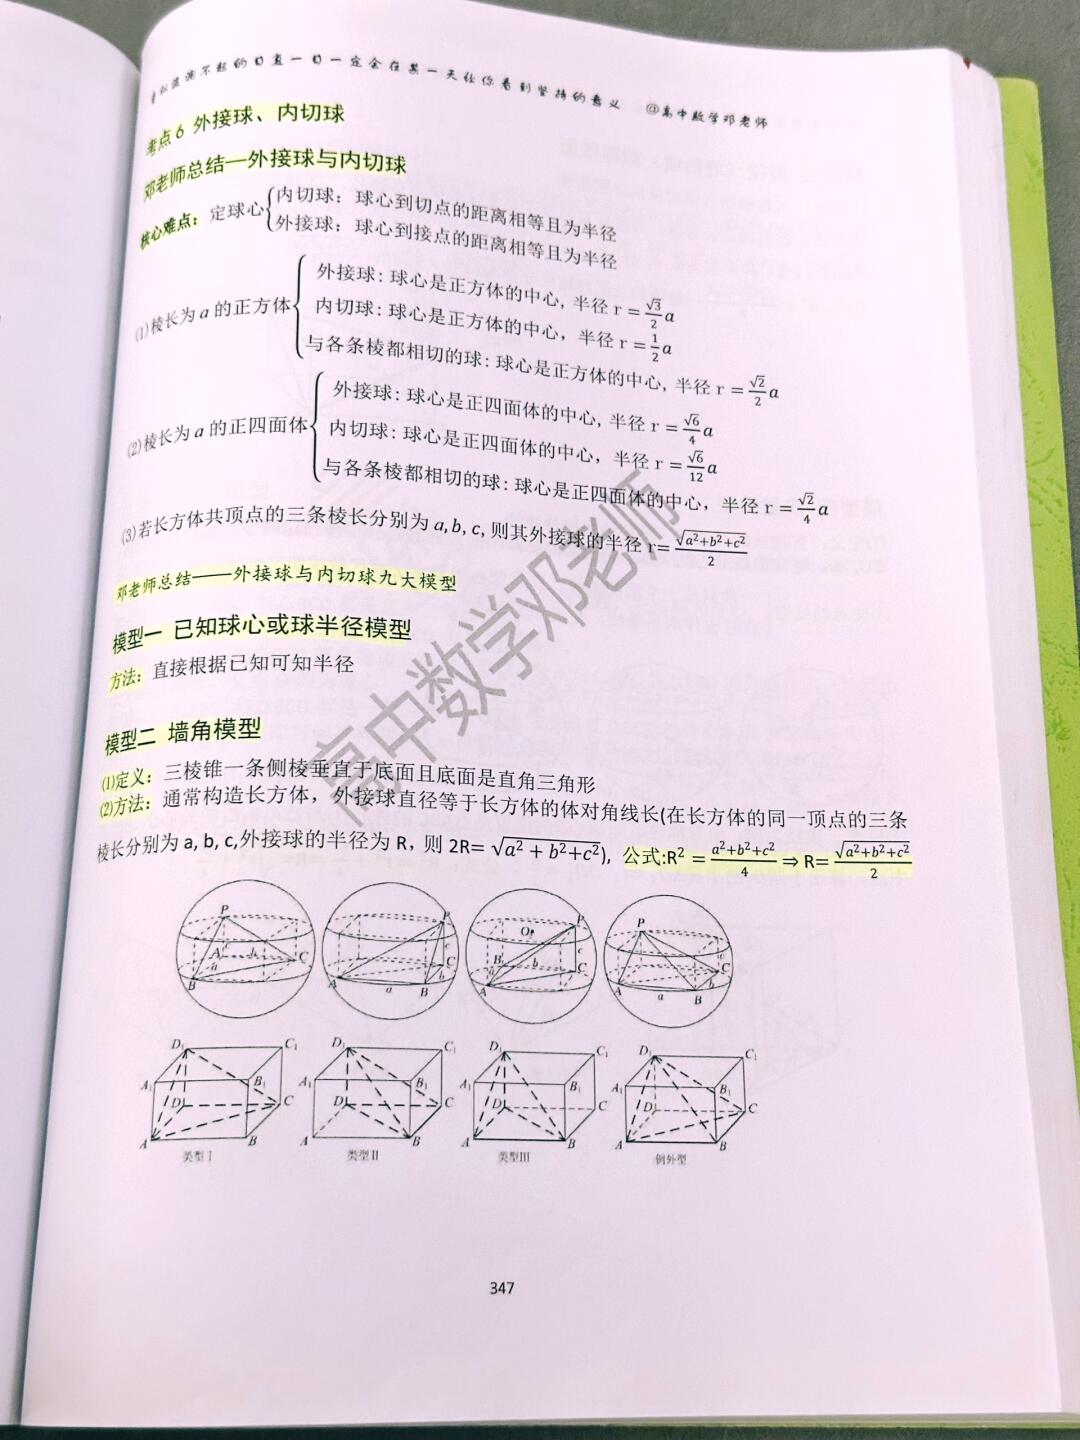 看似波澜不起的日复一日一定会在某一天让你看到坚持的意义 @高中数学邓老师
考点 6 外接球、内切球
邓老师总结—外接球与内切球
核心难点：定球心{内切球：球心到切点的距离相等且为半径
外接球：球心到接点的距离相等且为半径
(1)棱长为 a 的正方体{外接球: 球心是正方体的中心, 半径 r = √3/2 a
内切球: 球心是正方体的中心，半径 r = 1/2 a
与各条棱都相切的球: 球心是正方体的中心, 半径 r = √2/2 a
(2)棱长为 a 的正四面体{外接球: 球心是正四面体的中心, 半径 r = √6/4 a
内切球: 球心是正四面体的中心，半径 r = √6/12 a
与各条棱都相切的球: 球心是正四面体的中心，半径 r = √2/4 a
(3)若长方体共顶点的三条棱长分别为 a, b, c, 则其外接球的半径 r= √(a²+b²+c²)/2
邓老师总结——外接球与内切球九大模型
模型一 已知球心或球半径模型
方法：直接根据已知可知半径
模型二 墙角模型
(1)定义：三棱锥一条侧棱垂直于底面且底面是直角三角形
(2)方法：通常构造长方体，外接球直径等于长方体的体对角线长(在长方体的同一顶点的三条
棱长分别为 a, b, c,外接球的半径为 R，则 2R= √(a² + b²+c²)), 公式:R² = (a²+b²+c²)/4 ⇒ R= √(a²+b²+c²)/2
P A B C a b c
P A B C a b c
O₁ P A B C a b c
P A B C a b c
D₁ C₁ A₁ B₁ D C A B
D₁ C₁ A₁ B₁ D C A B
D₁ C₁ A₁ B₁ D C A B
D₁ C₁ A₁ B₁ D C A B
类型Ⅰ 类型Ⅱ 类型Ⅲ 例外型
347
高中数学邓老师